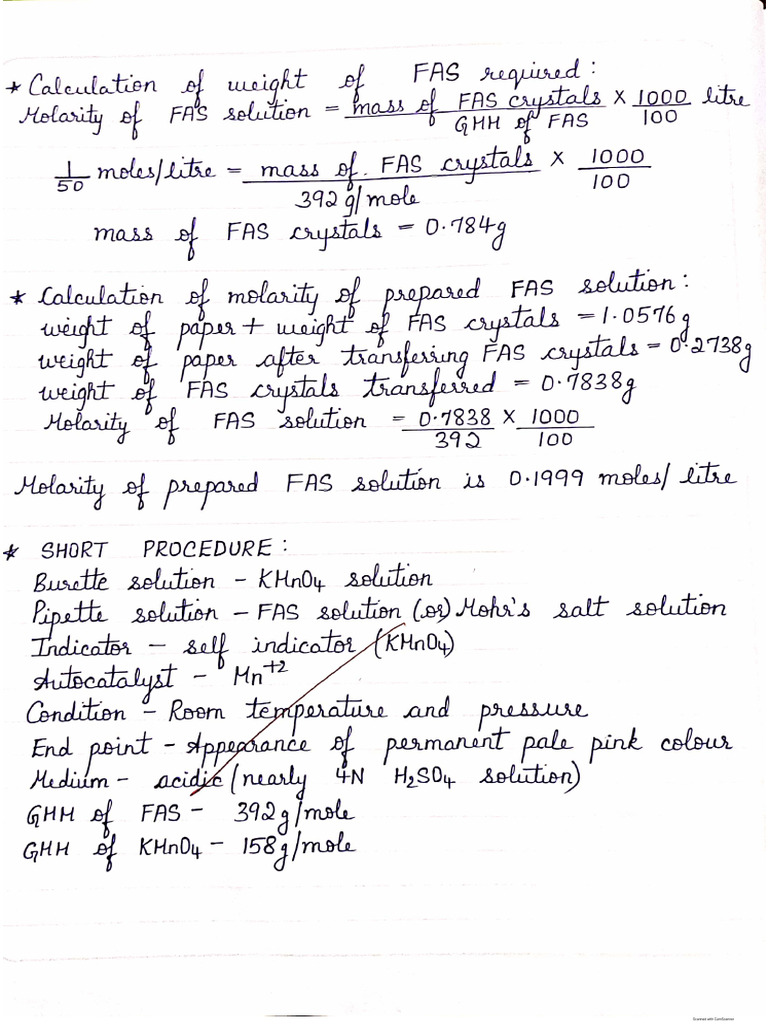 * Calculation of weight of FAS required:
Molarity of FAS solution = mass of FAS crystals / GMM of FAS × 1000 / 100 litre
1/50 moles/litre = mass of. FAS crystals / 392 g/mole × 1000 / 100
mass of FAS crystals = 0.784g
* Calculation of molarity of prepared FAS solution:
weight of paper + weight of FAS crystals = 1.0576 g
weight of paper after transferring FAS crystals = 0.2738g
weight of FAS crystals transferred = 0.7838g
Molarity of FAS solution = 0.7838 / 392 × 1000 / 100
Molarity of prepared FAS solution is 0.1999 moles/ litre
* SHORT PROCEDURE:
Burette solution - KMnO4 solution
Pipette solution - FAS solution (or) Mohr's salt solution
Indicator - self indicator (KMnO4)
Autocatalyst - Mn+2
Condition - Room temperature and pressure
End point - Appearance of permanent pale pink colour
Medium - acidic (nearly 4N H2SO4 solution)
GMM of FAS - 392g/mole
GMM of KMnO4 - 158g/mole
Scanned with CamScanner